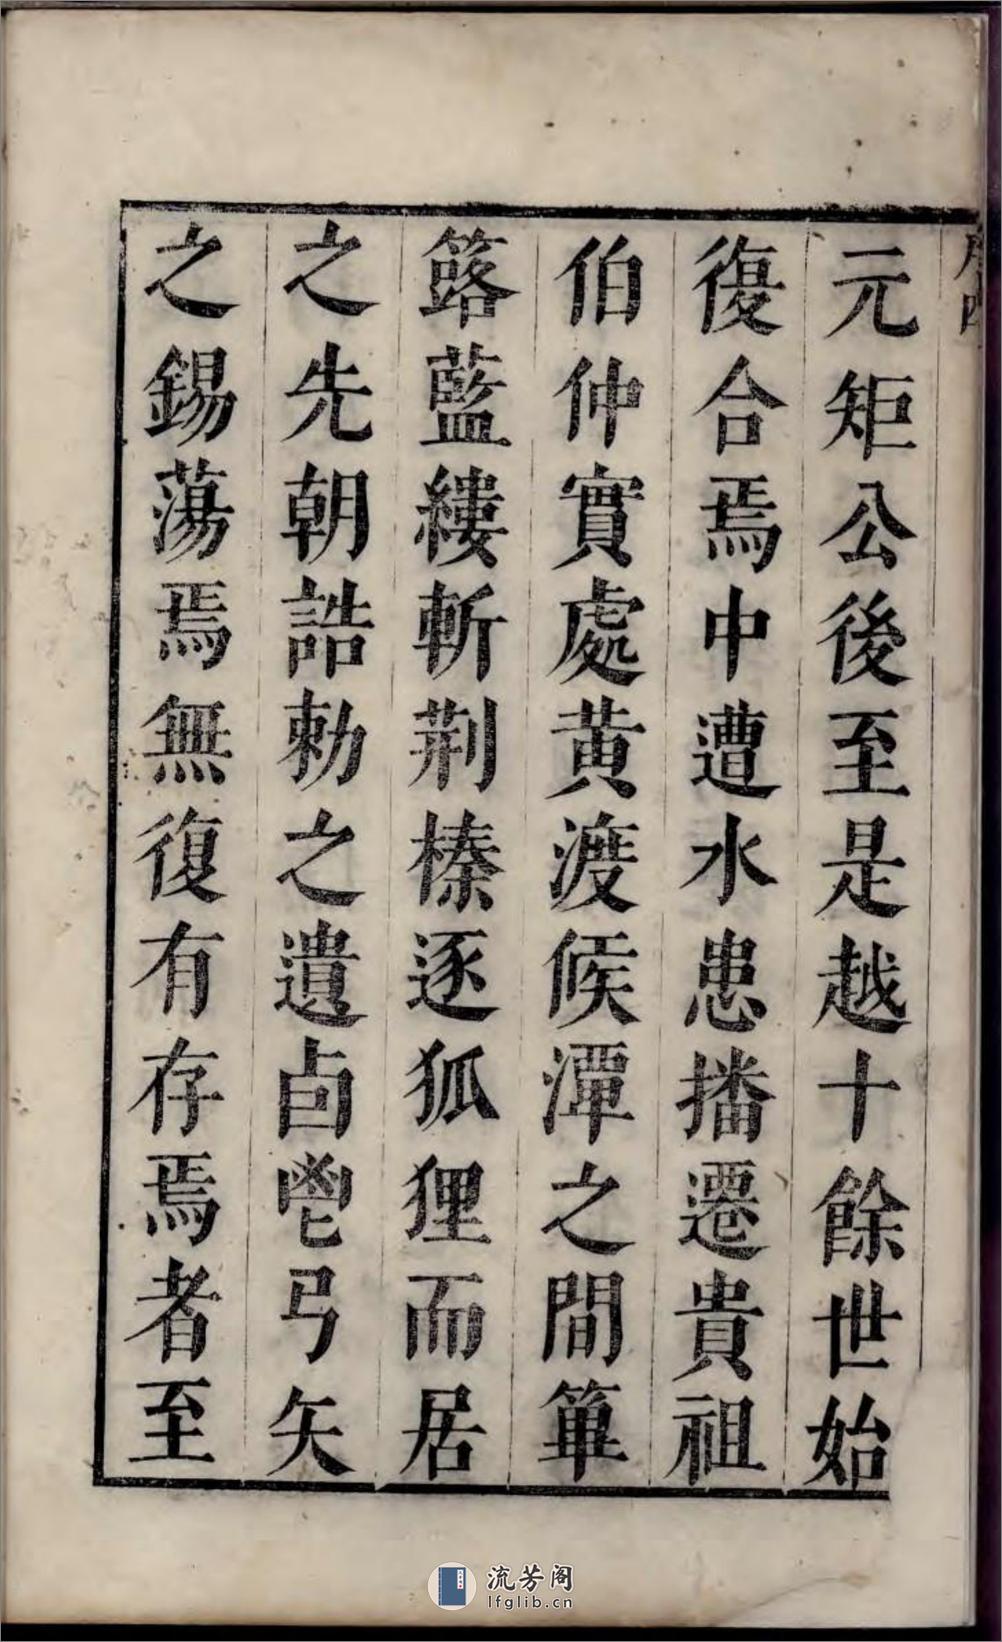 元矩公後至是越十餘世始
復合焉中遭水患播遷貴祖
伯仲實處黄渡候潭之間篳
簬藍縷斬荆榛逐狐狸而居
之先朝誥勅之遺卣鬯弓矢
之錫蕩焉無復有存焉者至
流芳阁
lfglib.cn